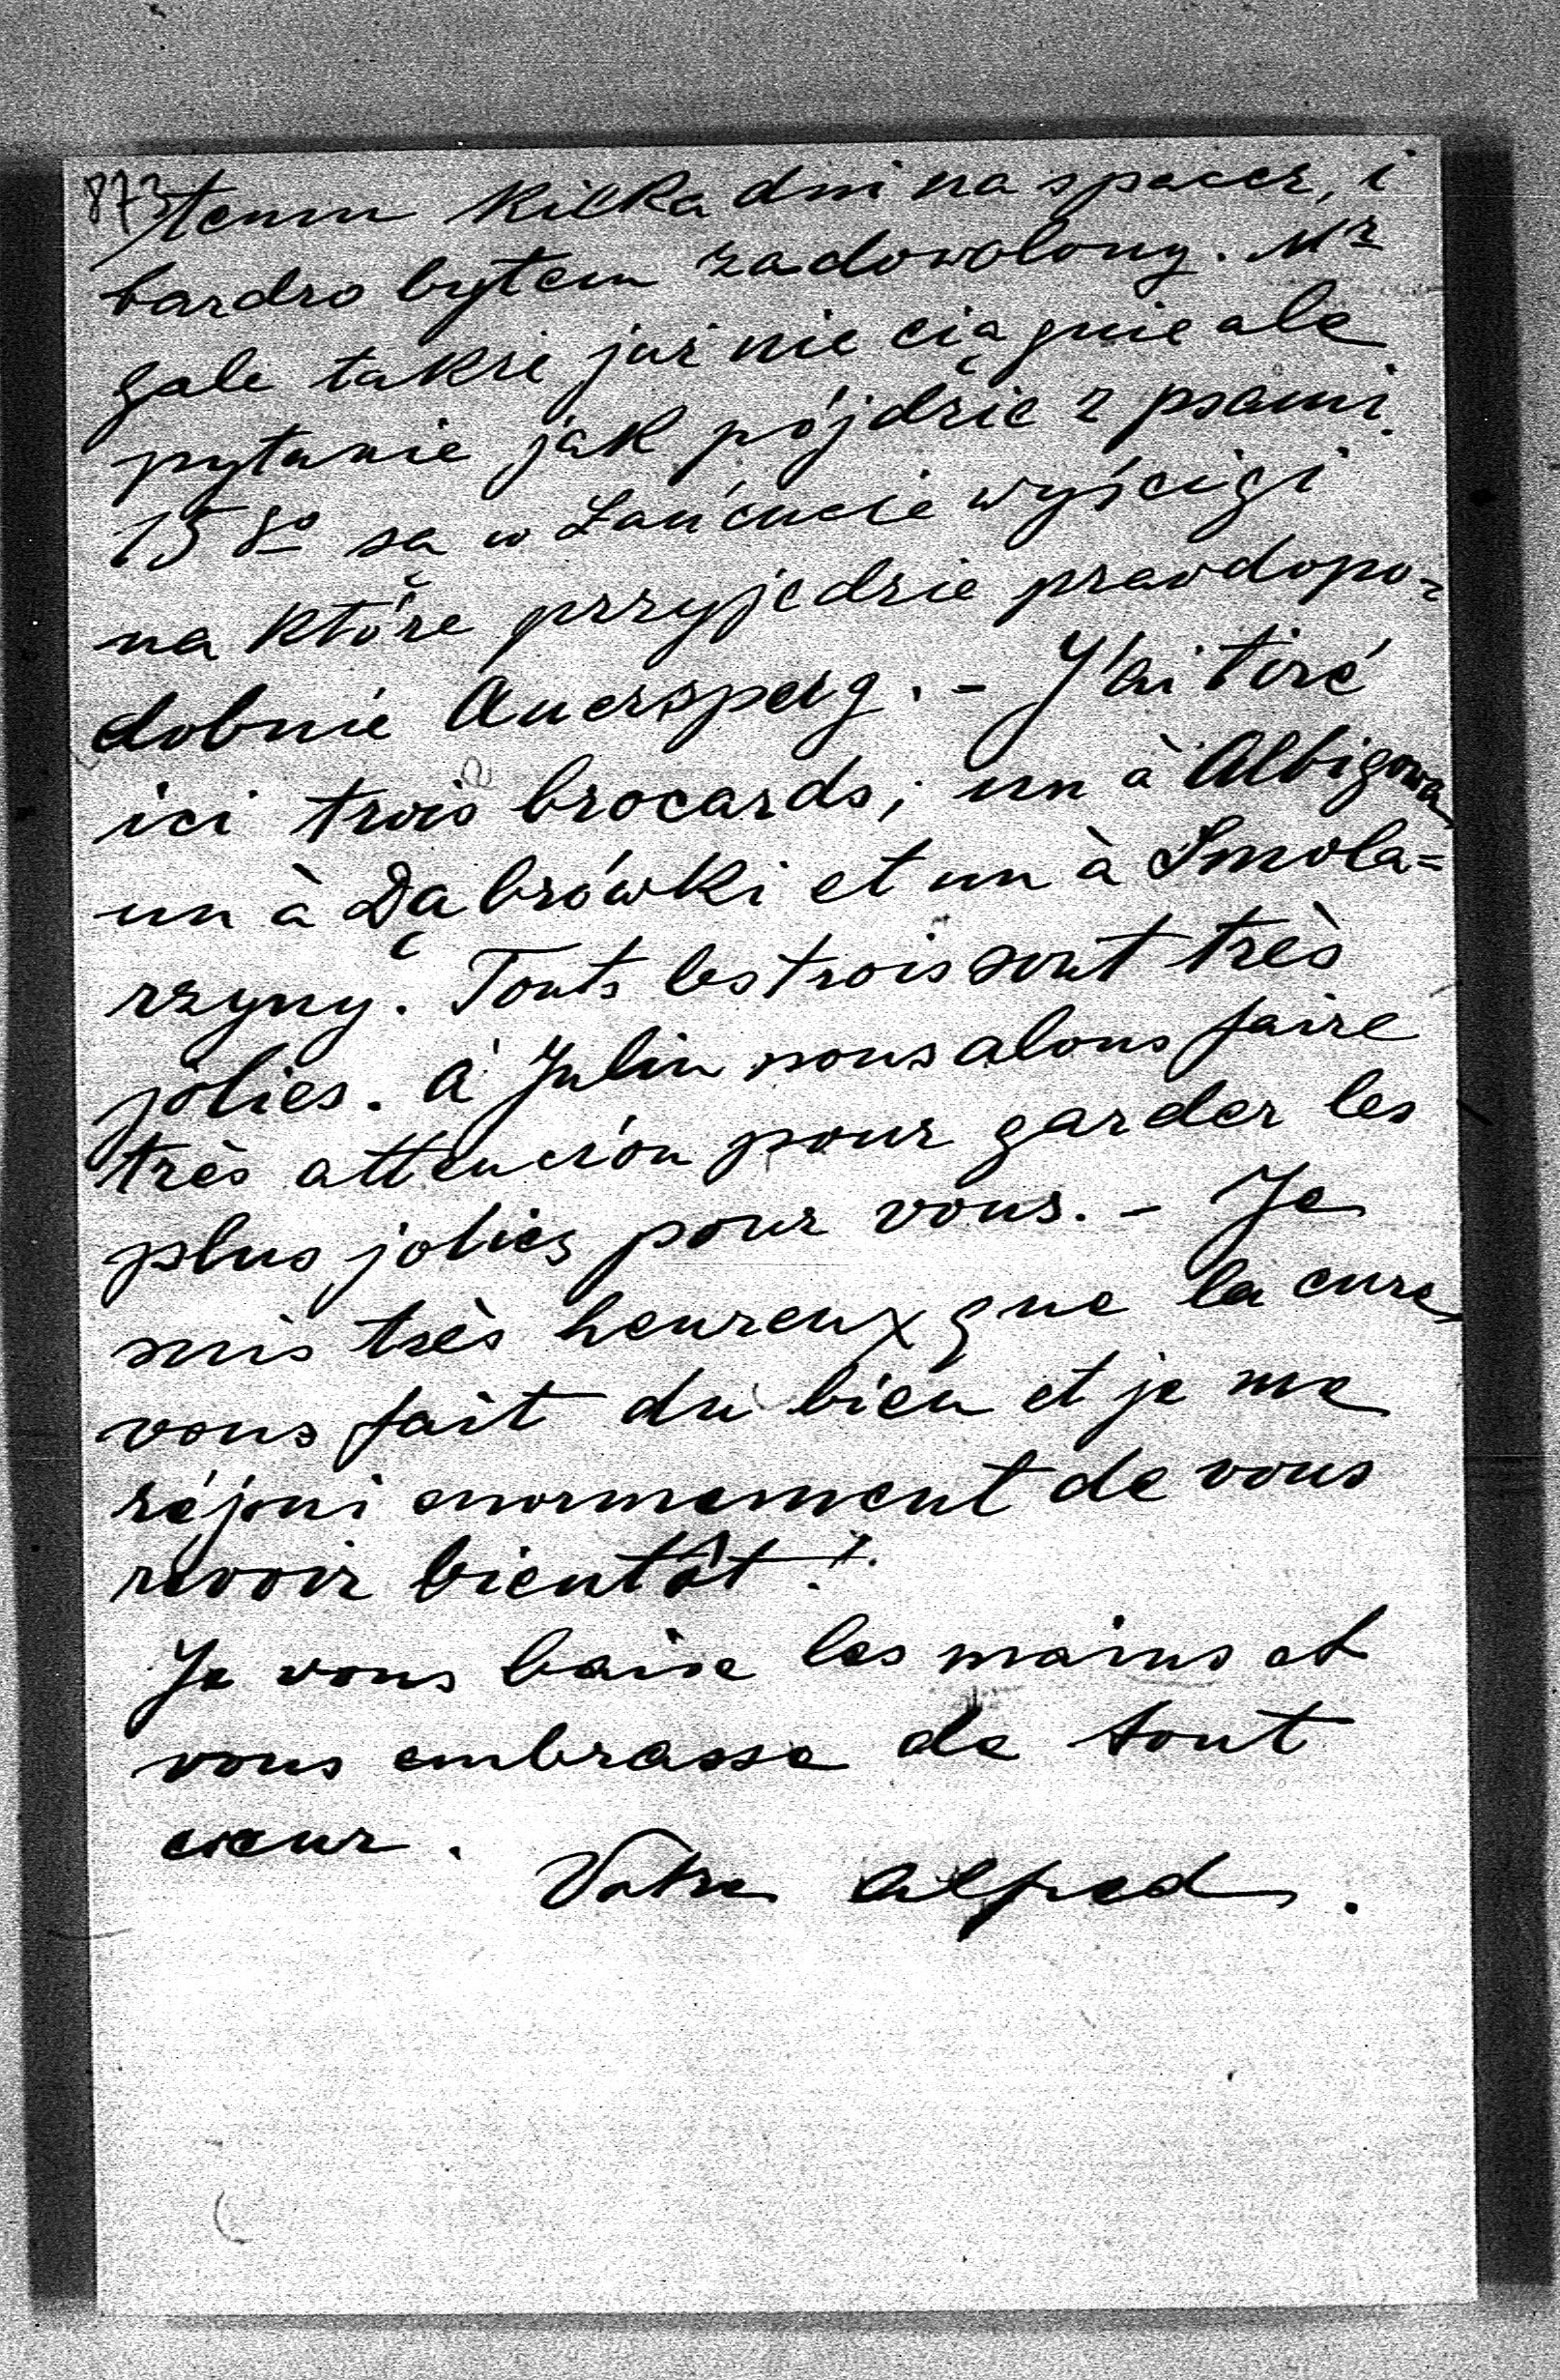 873
temu kilka dni na spacer, i
bardzo byłem zadowolony. W
gale także już nie ciągnie ale
pytanie jak pójdzie z psami.
15 go są w Łańcucie wyścigi
na które przyjedzie prawdopo=
dobnie Auersperg. - J'ai tiré
ici trois brocards; un à Albigowa
un à Dąbrówki et un à Smola=
rzyny. Touts les trois sont très
jolies. à Julin nous alons faire
très attencion pour garder les
plus jolies pour vous. - Je
suis très heureux que la cure
vous fait du bien et je me
réjoui enormement de vous
revoir bientôt!
Je vous baise les mains et
vous embrasse de tout
cœur.
Votre Alfred.